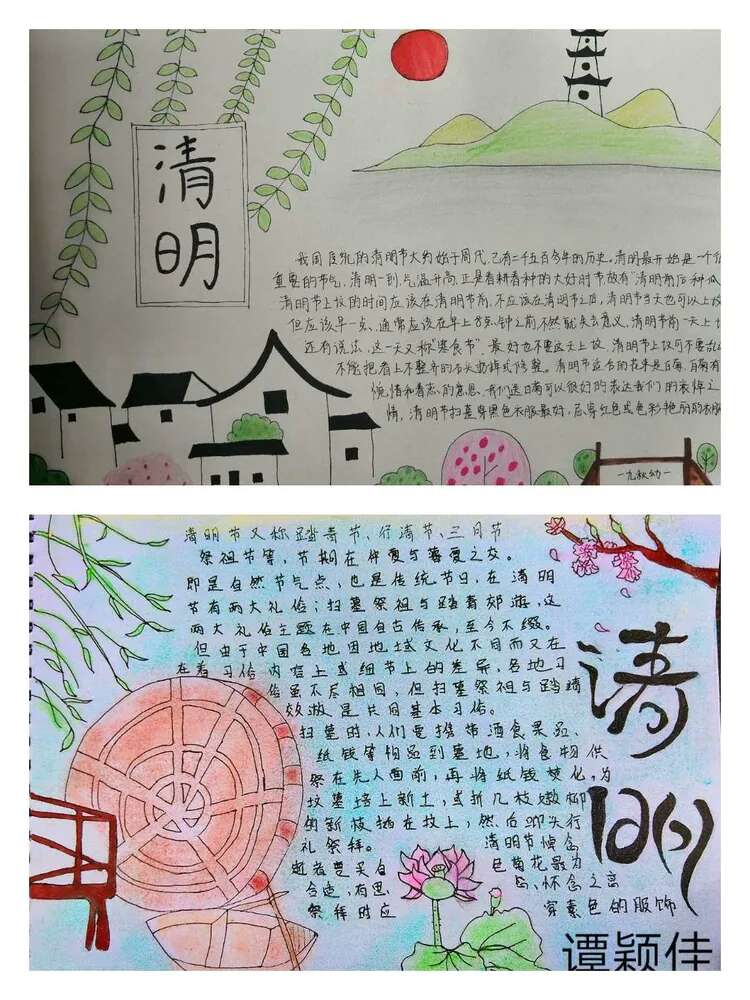 清明
我国传统的清明节大约始于周代,已有二千五百多年的历史。清明最开始是一个
重要的节气,清明一到,气温升高,正是春耕春种的大好时节,故有"清明前后种瓜
清明节上坟的时间应该在清明节前,不应该在清明节之后,清明节当天也可以上坟
但应该早一点、通常应该在早上8点钟之前,不然就失去意义,清明节前一天上
还有说法,这一天又称"寒食节",最好也不要这天上坟,清明节上坟可不要乱
不能把看上不整齐的石头动样式修整。清明节适合的花束是白菊,白菊有
惋惜和着志的意思,我们送白菊可以很好的表达我们的哀悼之
情,清明节扫墓穿黑色衣服最好,忌穿红色或色彩艳丽的衣服
一九秋幼一
清明节又称踏青节、行清节、三月节
祭祖节等,节期在仲春与暮春之交。
即是自然节气点,也是传统节日,在清明
节有两大礼俗:扫墓祭祖与踏青郊游,这
两大礼俗主题在中国自古传承,至今不缀。
但由于中国各地因地域文化不同而又在
在着习俗内容上或细节上的差异,各地习
俗虽不尽相同,但扫墓祭祖与踏晴
效游是共同基本习俗。
扫墓时,人们要携带酒食果品、
纸钱等物品到墓地,将食物供
祭在先人面前,再将纸钱焚化,为
坟墓培上新土,或折几枝嫩柳
的新枝插在坟上,然后叩头行
礼祭拜。 清明节悼念
逝者要买白 色菊花最为
合适,有思 念,怀念之意
祭拜时应 穿素色的服饰
清明
谭颖佳